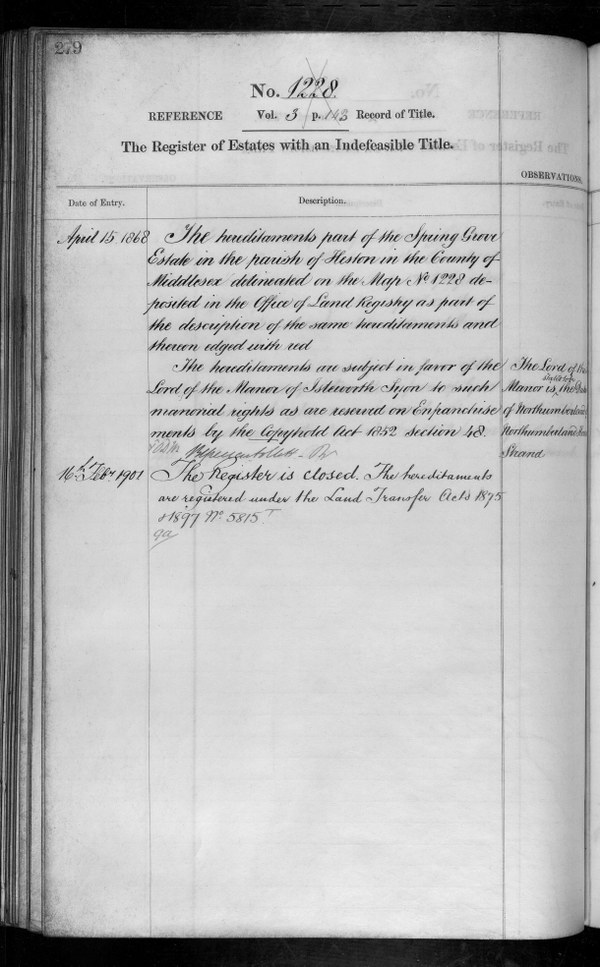 279
No. 1228.
REFERENCE Vol. 3 p. 143 Record of Title.
The Register of Estates with an Indefeasible Title.
OBSERVATIONS.
Date of Entry.
Description.
April 15 1868
The hereditaments part of the Spring Grove
Estate in the parish of Heston in the County of
Middlesex delineated on the Map No 1228 de-
posited in the Office of Land Registry as part of
the description of the same hereditaments and
thereon edged with red
The hereditaments are subject in favor of the
Lord of the Manor of Isleworth Syon to such
manorial rights as are reserved on Enfranchise
ments by the Copyhold Act 1852 section 48.
The Lord of the
Manor is the Duke
of Northumberland
Northumberland House
Strand
16th Feby 1901
The Register is closed. The hereditaments
are registered under the Land Transfer Acts 1875
& 1897 No 5815.